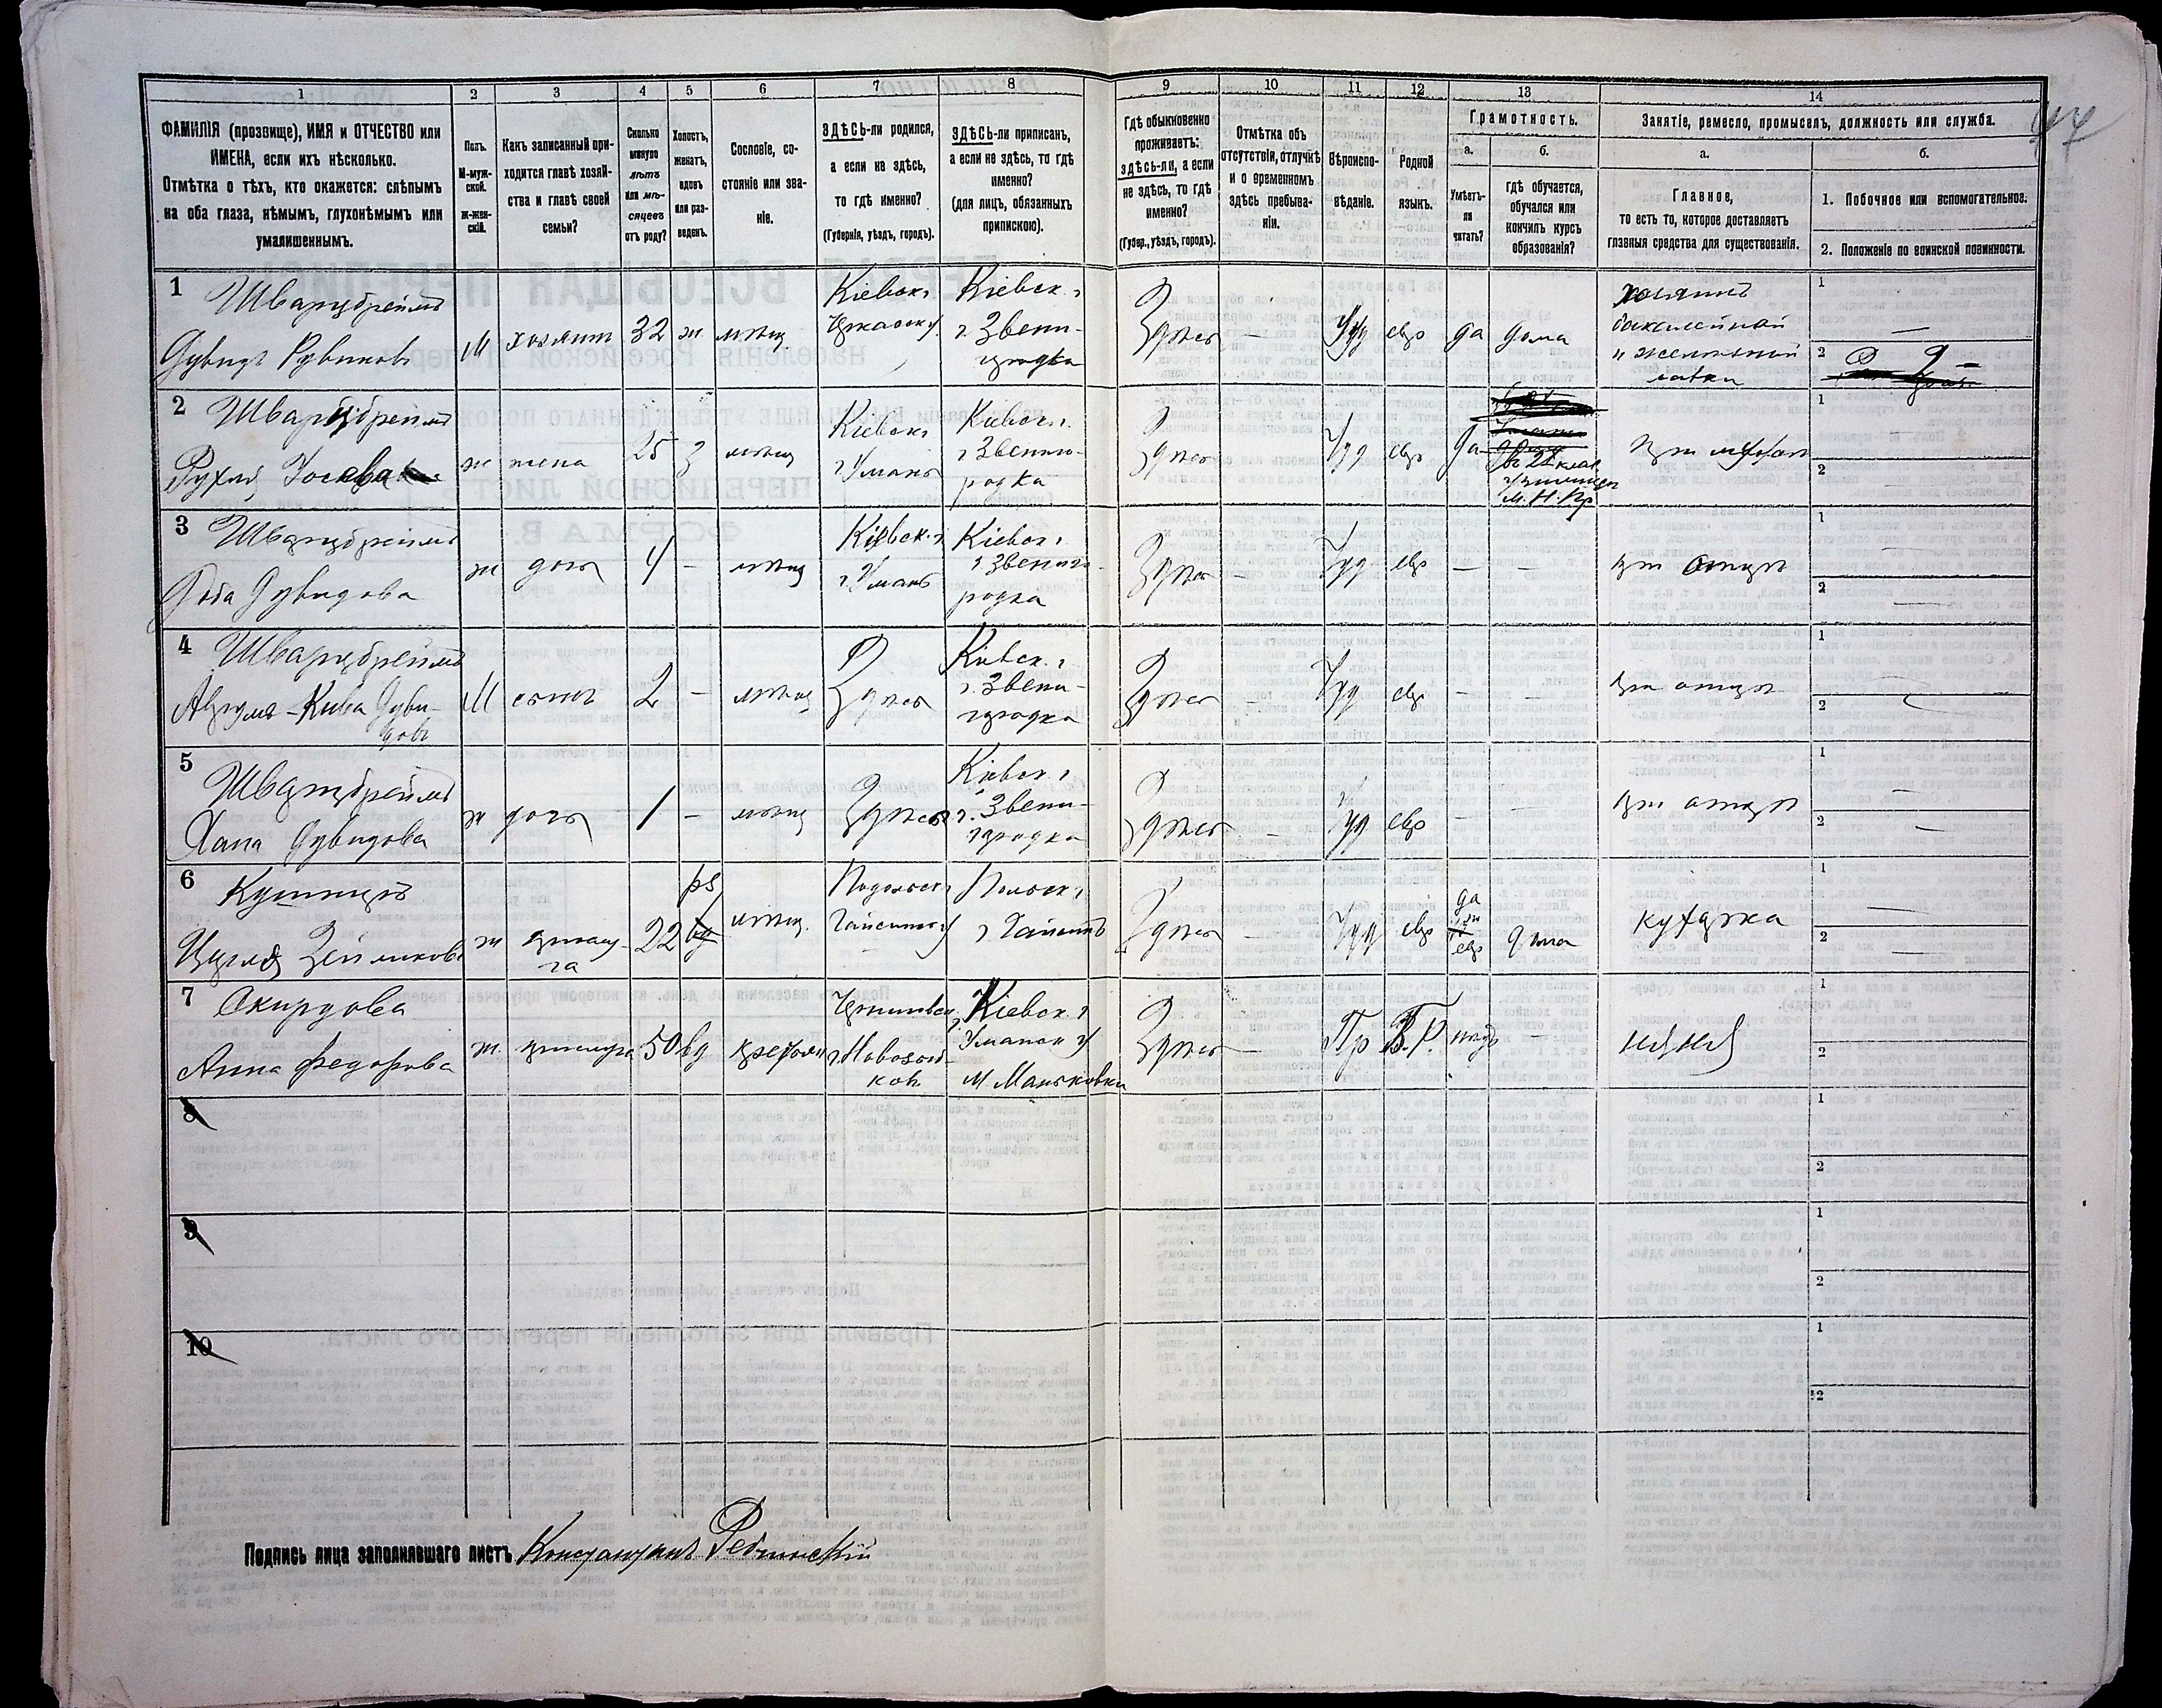 1 2 3 4 5 6 7 8 9 10 11 12 13 14
44
ФАМИЛІЯ (прозвище), ИМЯ и ОТЧЕСТВО или
ИМЕНА, если ихъ нѣсколько.
Отмѣтка о тѣхъ, кто окажется: слѣпымъ
на оба глаза, нѣмымъ, глухонѣмымъ или
умалишеннымъ.
Полъ.
М-муж-
ской.
ж-жен-
скій.
Какъ записанный при-
ходится главѣ хозяй-
ства и главѣ своей
семьи?
Сколько
минуло
лѣтъ
или мѣ-
сяцевъ
отъ роду?
Холостъ,
женатъ,
вдовъ
или раз-
веденъ.
Сословіе, со-
стояніе или зва-
ніе.
ЗДѢСЬ-ли родился,
а если не здѣсь,
то гдѣ именно?
(Губернія, уѣздъ, городъ).
ЗДѢСЬ-ли приписанъ,
а если не здѣсь, то гдѣ
именно?
(для лицъ, обязанныхъ
припискою).
Гдѣ обыкновенно
проживаетъ:
здѣсь-ли, а если
не здѣсь, то гдѣ
именно?
(Губер., уѣздъ, городъ).
Отмѣтка объ
отсутствіи, отлучкѣ
и о временномъ
здѣсь пребыва-
ніи.
Вѣроиспо-
вѣданіе.
Родной
языкъ.
Грамотность.
а.
Умѣетъ-
ли
читать?
б.
гдѣ обучается,
обучался или
кончилъ курсъ
образованія?
Занятіе, ремесло, промыселъ, должность или служба.
а.
Главное,
то есть то, которое доставляетъ
главныя средства для существованія.
б.
1. Побочное или вспомогательное.
2. Положеніе по воинской повинности.
1 Шварцбреймъ
Дувидъ Рувиновъ
М хозяинъ 32 ж. мѣщ.
Кіевск. г
Черкаск у.
Кіевск. г
г. Звени-
городка
Здѣсь — Іуд евр да дома
хозяинъ
бакалейной
и желѣзной
лавки
1 —
2
2 Шварцбреймъ
Рухля Іосева
ж жена 25 з мѣщ
Кіевск г
г Умань
Кіевск г.
г Звениго-
родка
Здѣсь — Іуд евр да
въ 2х клас
училищѣ
М. Н. Пр
при мужѣ
1 —
2 —
3 Шварцбреймъ
Дувидова
ж дочь 4 — мѣщ
Кіевск. г
г. Умань
Кіевск г
г Звениго-
родка
Здѣсь — Іуд евр — —
при отцѣ
1 —
2 —
4 Шварцбреймъ
Дуви-
довъ
М сынъ 2 — мѣщ
Здѣсь
Кіевск. г
г. Звени-
городка
Здѣсь — Іуд евр — —
при отцѣ
1 —
2
5 Шварцбреймъ
Хана Дувидова
ж дочь 1 — мѣщ
Здѣсь
Кіевск. г
г. Звени-
городка
Здѣсь — Іуд евр — —
при отцѣ
1 —
2 —
6 Кушниръ
ж прислу-
га
22 рз мѣщ.
Подольск г
Гайсинск у
г Гайсинъ
Здѣсь — Іуд евр да
евр дома
кухарка
1 —
2 —
7 Скирдова
Анна Федорова
ж. прислуга 50 вд крестьян
Черниговск г
г. Новозыб-
ковъ
Кіевск. г
Уманск у
м Маньковка
Здѣсь — Пр В.Р. — няня
1 —
2 —
8
1
2
9
1
2
10
1
2
Подпись лица заполнявшаго листъ Константинъ